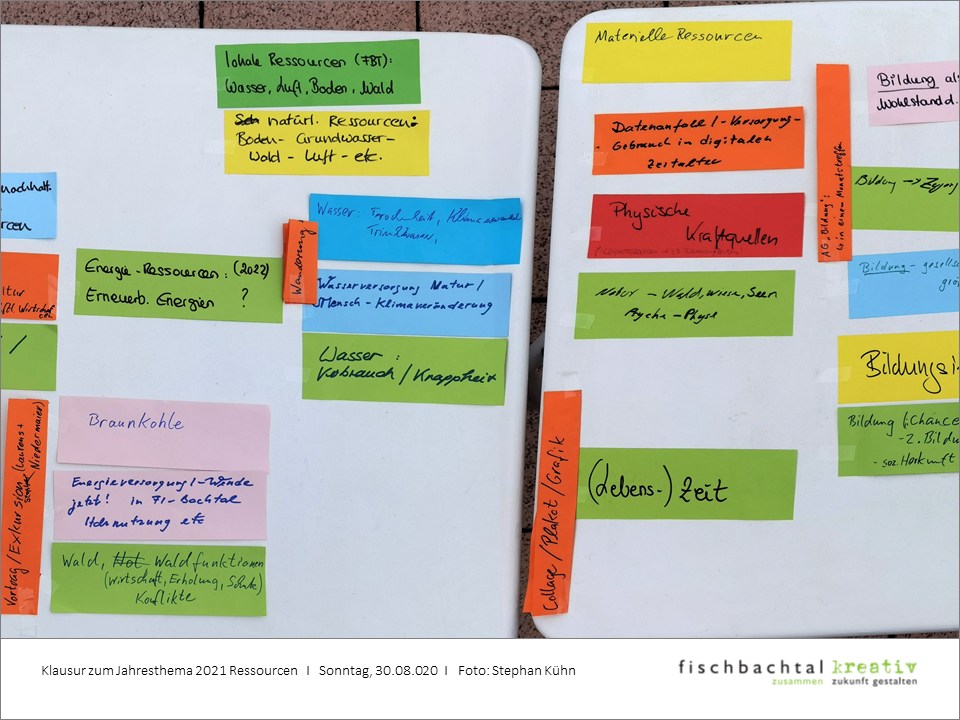 lokale Ressourcen (FBT):
Wasser, Luft, Boden, Wald
natürl. Ressourcen:
Boden- Grundwasser-
Wald - Luft - etc.
nachhalt.
rcen
Energie-Ressourcen: (2022)
Erneuerb. Energien ?
Wanderung
Wasser: Trockenheit, Klimawandel
Trinkwasser,
Wasserversorgung Natur /
Mensch - Klimaveränderung
Wasser:
Verbrauch / Knappheit
ltur
Wirtschaf
/
Vortrag / Exkursion (Laurens +
Niedermaier)
Braunkohle
Energieversorgung / - Wende
jetzt! in FI-Bachtal
Holznutzung etc
Wald, Waldfunktionen
(Wirtschaft, Erholung, Schutz)
Konflikte
Materielle Ressourcen
Datenanfall / - Versorgung -
Gebrauch in digitalen
Zeitalter
Physische
Kraftquellen
Natur - Wald, Wiese, Seen
Psyche - Physe
(Lebens-) Zeit
Collage / Plakat / Grafik
AG "Bildung":
in einem Monatstreffen
Bildung als
Wohlstand d.
Bildung →
Bildung - gesells
grö
Bildungsi
Bildung (Chance
- 2. Bildu
- soz. Herkunft
Klausur zum Jahresthema 2021 Ressourcen I Sonntag, 30.08.020 I Foto: Stephan Kühn
fischbachtal kreativ
zusammen zukunft gestalten